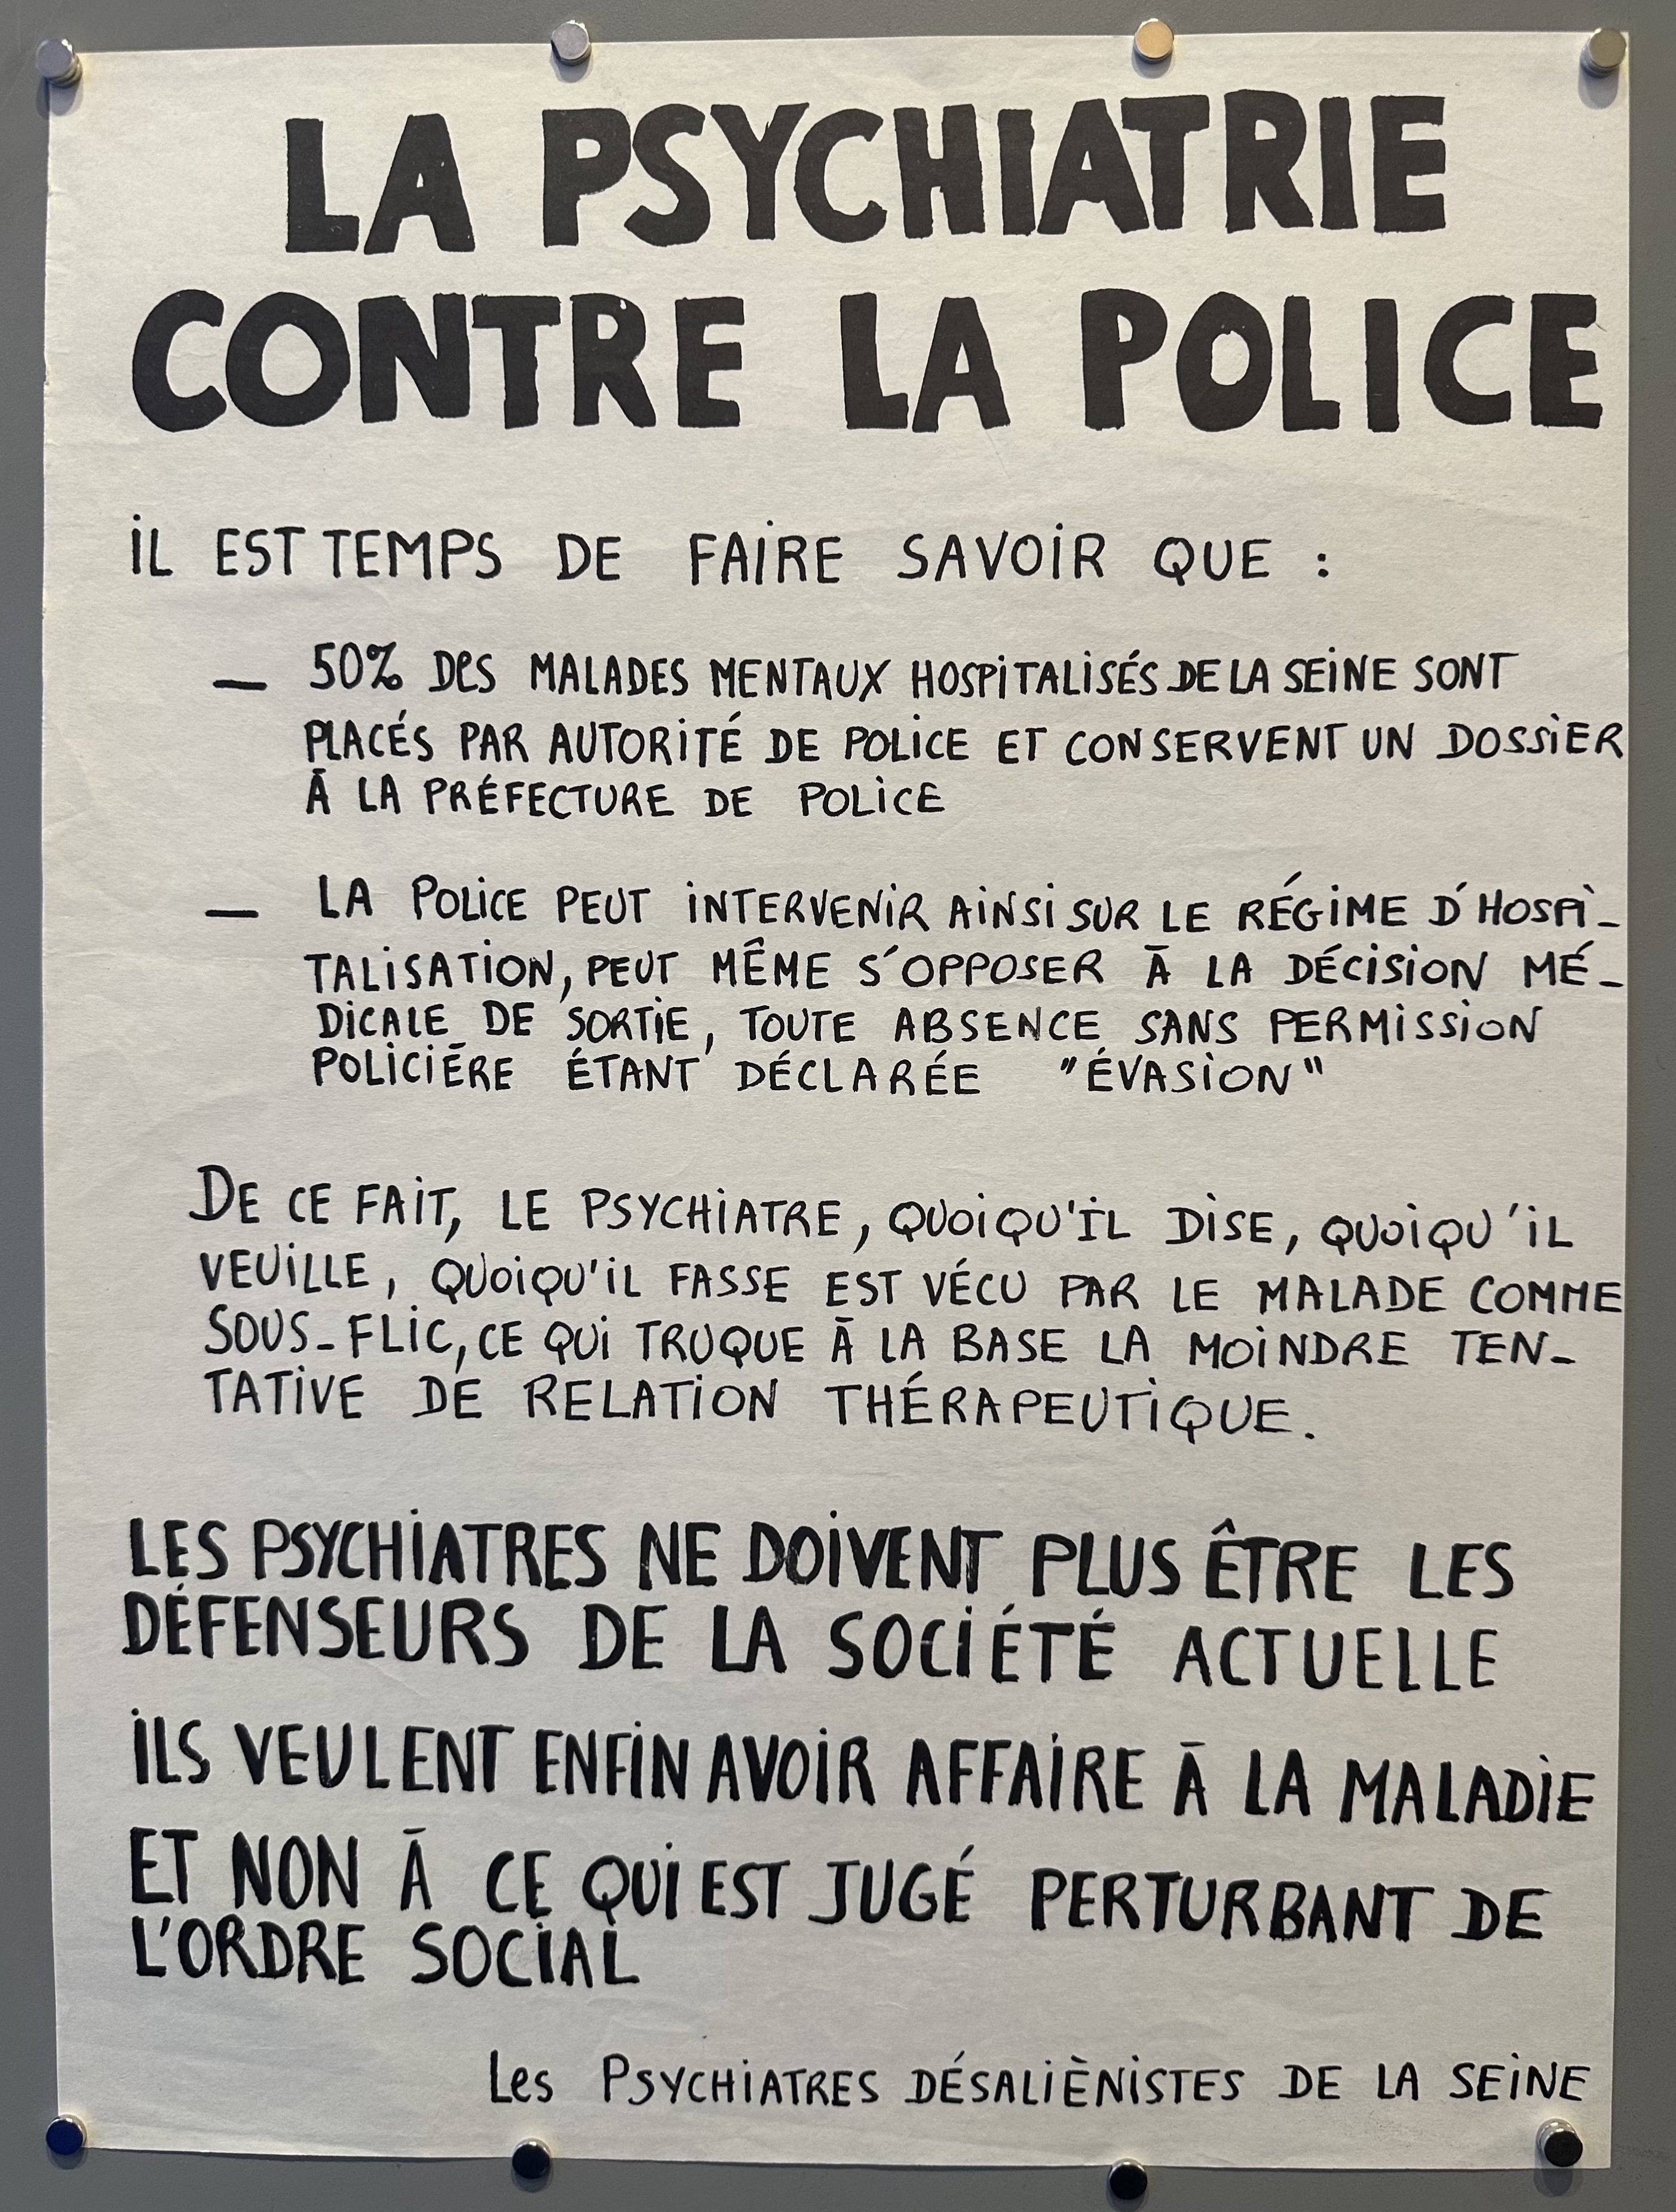 LA PSYCHIATRIE
CONTRE LA POLICE
iL EST TEMPS DE FAiRE SAVOiR QUE :
— 50% DES MALADES MENTAUX HOSPiTALiSÉS DE LA SEiNE SONT
PLACÉS PAR AUTORiTÉ DE POLiCE ET CONSERVENT UN DOSSiER
Ā LA PRÉFECTURE DE POLiCE
— LA POLiCE PEUT iNTERVENiR AiNSi SUR LE RÉGiME D'HOSPi-
TALiSATiON, PEUT MÊME S'OPPOSER Ā LA DÉCiSiON MÉ-
DiCALE DE SORTiE, TOUTE ABSENCE SANS PERMiSSiON
POLiCiĒRE ÉTANT DÉCLARÉE "ÉVASiON"
DE CE FAiT, LE PSYCHiATRE, QUOiQU'iL DiSE, QUOiQU'iL
VEUiLLE, QUOiQU'iL FASSE EST VÉCU PAR LE MALADE COMME
SOUS-FLiC, CE QUi TRUQUE Ā LA BASE LA MOiNDRE TEN-
TATiVE DE RELATiON THÉRAPEUTiQUE.
LES PSYCHiATRES NE DOiVENT PLUS ÊTRE LES
DÉFENSEURS DE LA SOCiÉTÉ ACTUELLE
iLS VEULENT ENFiN AVOiR AFFAiRE Ā LA MALADiE
ET NON Ā CE QUi EST JUGÉ PERTURBANT DE
L'ORDRE SOCiAL
Les PSYCHiATRES DÉSALiÈNiSTES DE LA SEiNE